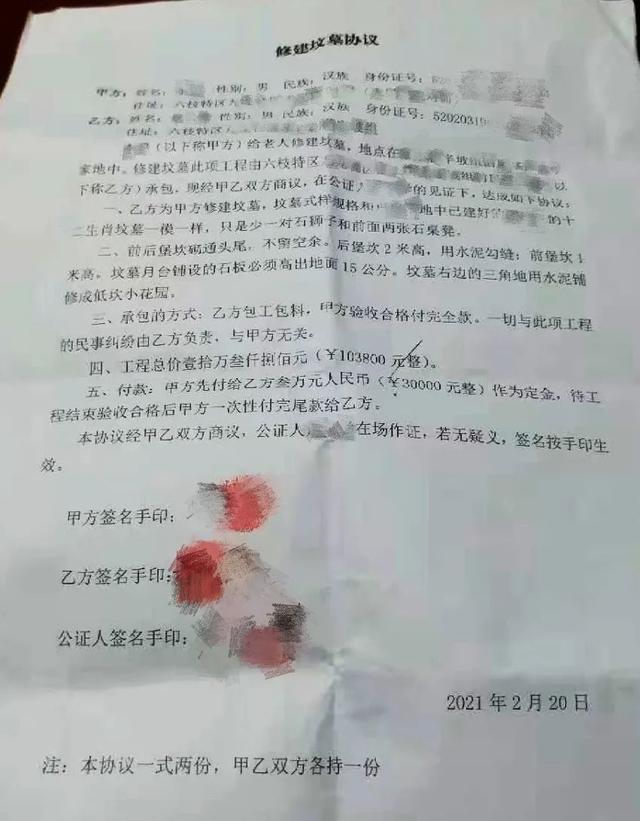 修建坟墓协议
甲方：姓名： 性别：男 民族：汉族 身份证号：
住址：六枝特区
乙方：姓名： 性别：男 民族：汉族 身份证号：52020319
住址：六枝特区
（以下称甲方）给老人修建坟墓，地点在
家地中。修建坟墓此项工程由六枝特区 以
下称乙方）承包，现经甲乙双方商议，在公证人 的见证下，达成如下协议：
一、乙方为甲方修建坟墓，坟墓式样规格和 地中已建好的 的十
二生肖坟墓一模一样，只是少一对石狮子和前面两张石桌凳。
二、前后堡坎码通头尾，不留空余。后堡坎2米高，用水泥勾缝；前堡坎1
米高。坟墓月台铺设的石板必须高出地面15公分。坟墓右边的三角地用水泥铺
修成低坎小花园。
三、承包的方式：乙方包工包料，甲方验收合格付完全款。一切与此项工程
的民事纠纷由乙方负责，与甲方无关。
四、工程总价壹拾万叁仟捌佰元（￥103800元整）。
五、付款：甲方先付给乙方叁万元人民币（￥30000元整）作为定金，待工
程结束验收合格后甲方一次性付完尾款给乙方。
本协议经甲乙双方商议，公证人 在场作证，若无疑义，签名按手印生
效。
甲方签名手印：
乙方签名手印：
公证人签名手印：
2021年2月20日
注：本协议一式两份，甲乙双方各持一份